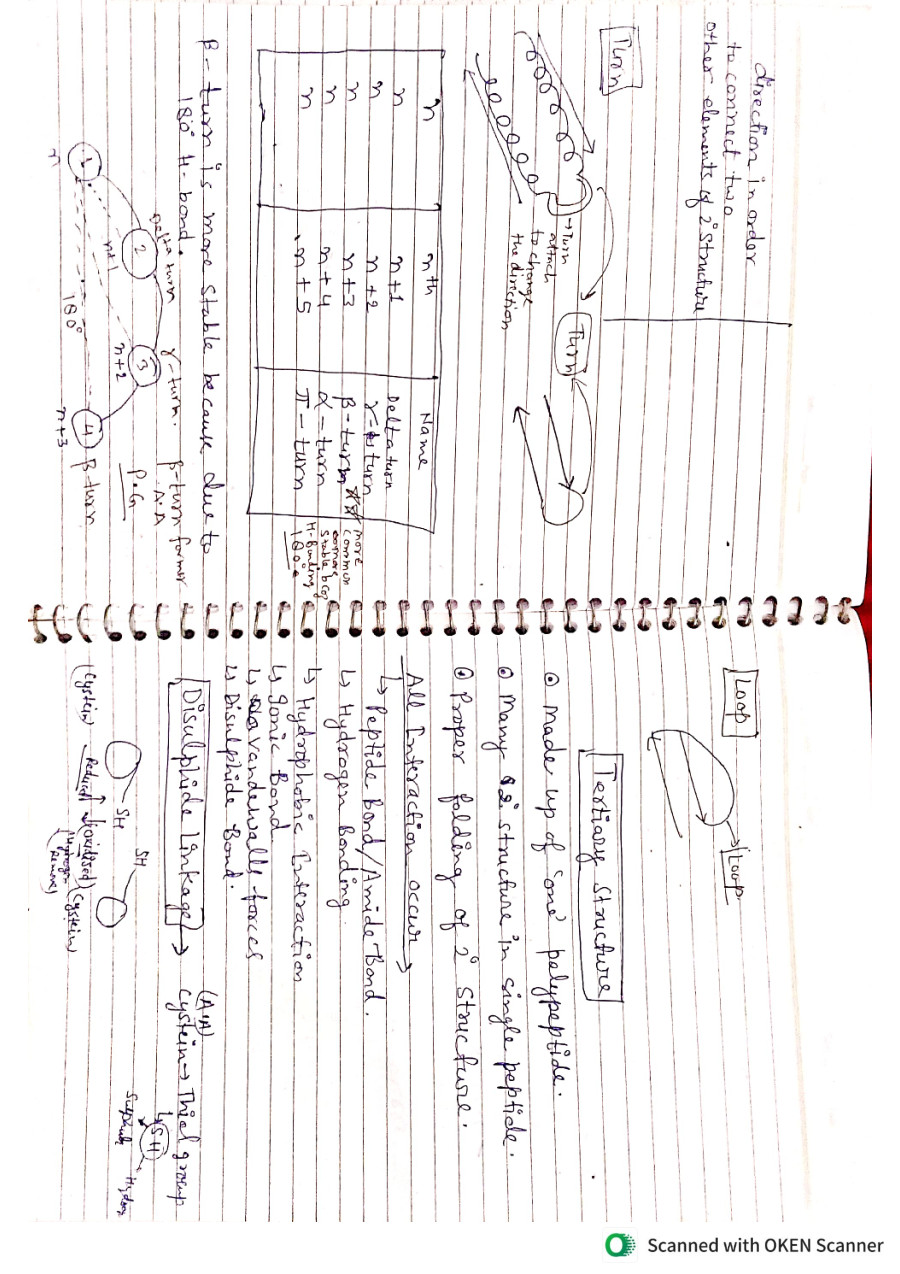 direction in order
to connect two
other elements of 2° Structure
Turn
→ Turn
attach
to change
the direction
Turn
n nth Name
n n+1 Delta turn
n n+2 γ-turn
n n+3 β-turn ** more
common
n n+4 α-turn
stable bcoz
n n+5 π-turn
H-Bonding
180°
β-turn is more stable because due to
180° H-bond.
Delta turn γ-turn. β-turn former
A.A
P & G
1 2 3 4
n n+1 n+2 n+3
180°
β-turn
Loop
→ Loop
Tertiary Structure
⊙ Made up of "one" polypeptide.
⊙ Many 2° structure in single peptide.
⊙ Proper folding of 2° Structure.
All Interaction occur →
↳ Peptide bond/Amide Bond.
↳ Hydrogen Bonding.
↳ Hydrophobic Interaction
↳ Ionic Bond
↳ vandewalls forces
↳ Disulphide Bond.
Disulphide Linkage → (A.A)
cystein → Thiol group
↳ SH
Sulphur
SH SH
(Cystein) (oxidised) (Cystein)
(Hydrogen
Remove)
Scanned with OKEN Scanner